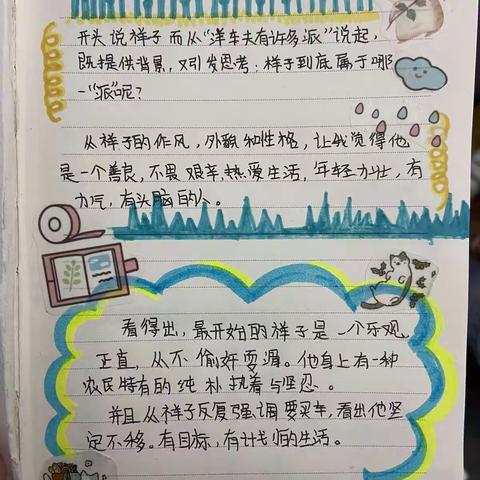 开头说祥子而从“洋车夫有许多派”说起,
既提供背景,又引发思考:祥子到底属于哪
一“派”呢?
从祥子的作风,外貌和性格,让我觉得他
是一个善良,不畏艰辛,热爱生活,年轻力壮,有
力气,有头脑的人。
看得出,最开始的祥子是一个乐观、
正直,从不偷奸耍滑。他身上有一种
农民特有的纯朴执着与坚忍。
并且从祥子反复强调要买车,看出他坚
定不移。有目标,有计划的生活。